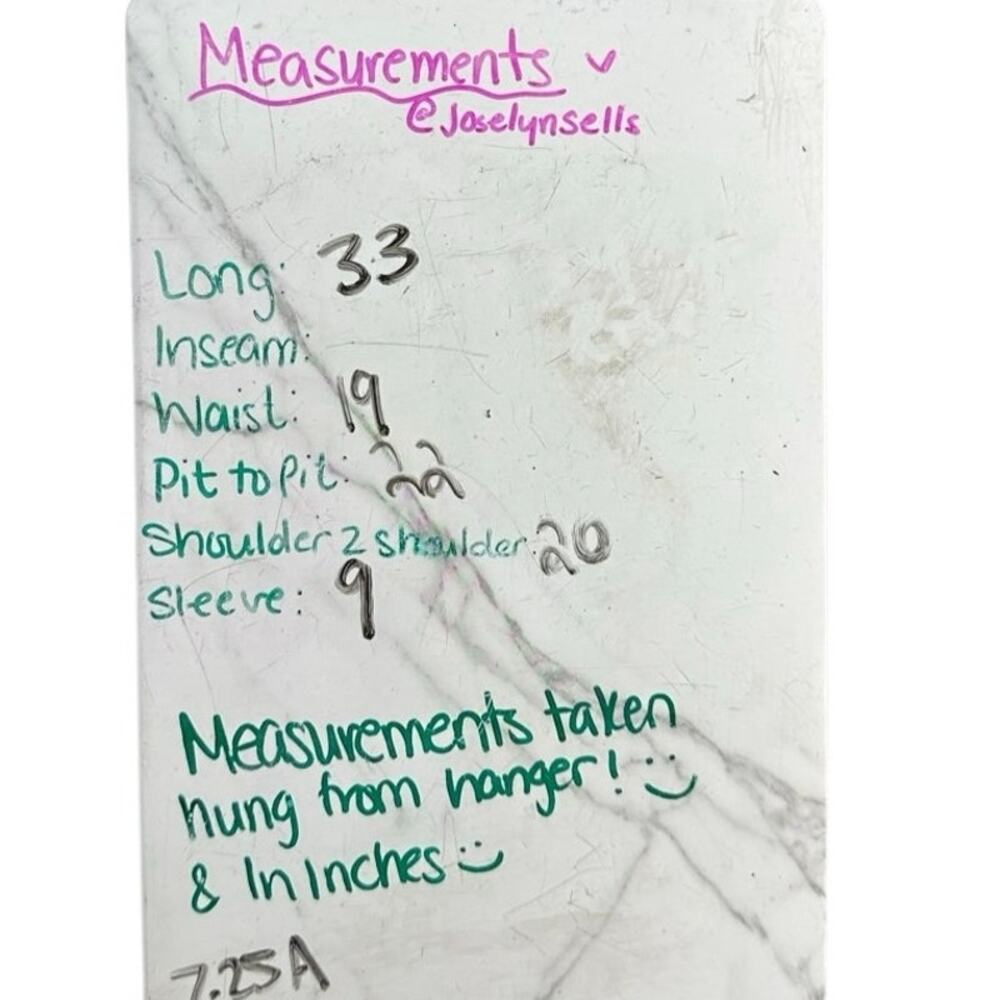 Measurements
@Joselynsells
Long: 33
Inseam:
Waist: 19
Pit to Pit: 22
Shoulder 2 shoulder: 20
Sleeve: 9
Measurements taken
hung from hanger! :)
& In Inches :)
7.25A